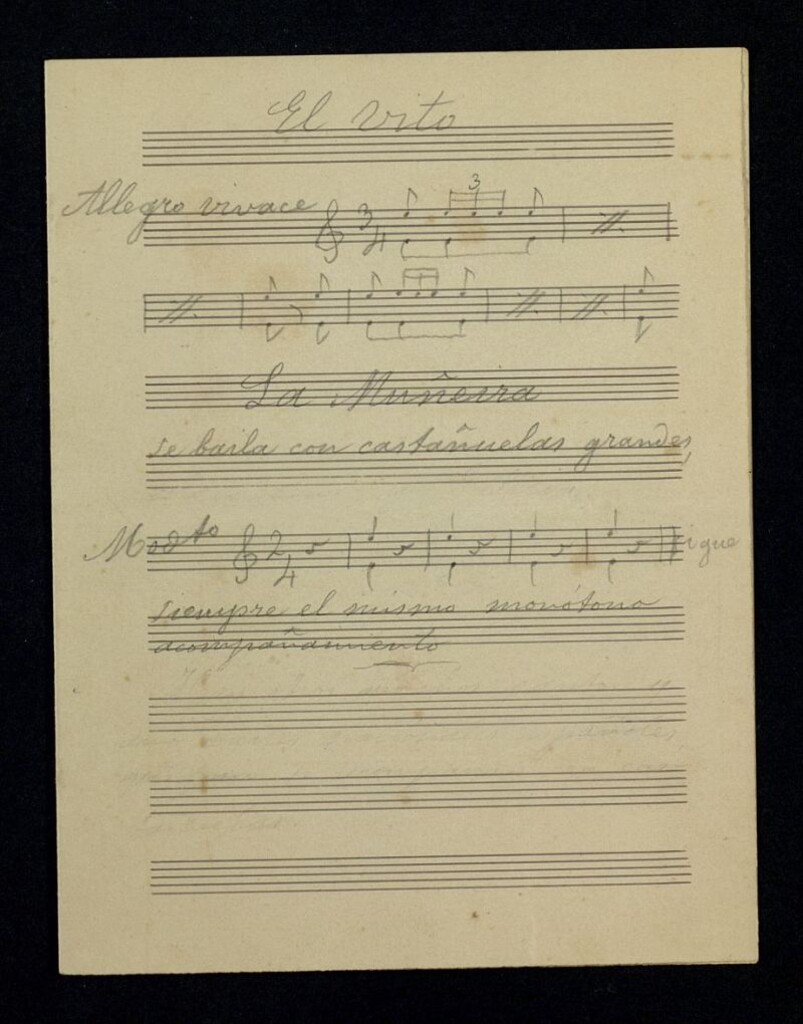 El Vito
Allegro vivace 3/4 3
La Muñeira
se baila con castañuelas grandes,
Modto 2/4 sigue
siempre el mismo monótono
acompañamiento